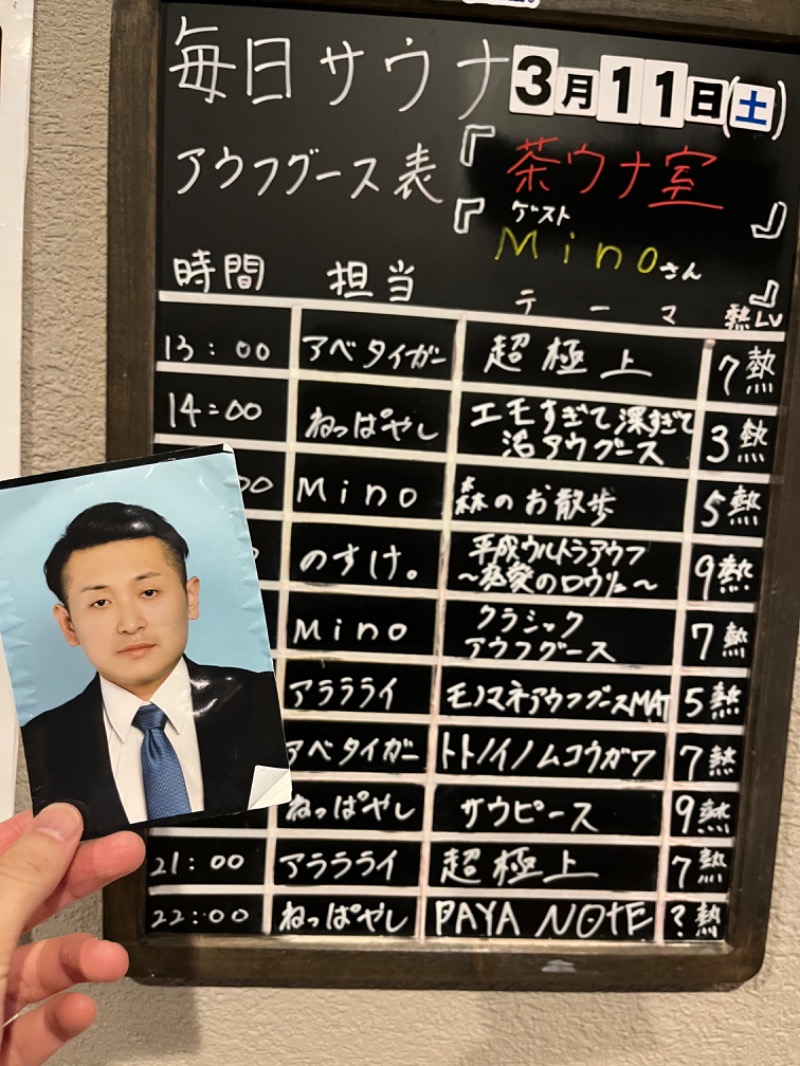 毎日サウナ 3月11日(土)
アウフグース表 『茶ウナ室』
ゲスト
『Minoさん』
時間 担当 テーマ 熱LV
13:00 アベタイガー 超極上 7熱
14:00 ねっぱやし エモすぎて深すぎて
沼アウグース 3熱
00 Mino 森のお散歩 5熱
のすけ。 平成ウルトラアウフ
〜のロウリュ〜 9熱
Mino クラシック
アウフグース 7熱
アラララライ モノマネアウフグースMAT 5熱
アベタイガー トトノイノムコウガワ 7熱
ねっぱやし サウピース 9熱
21:00 アラララライ 超極上 7熱
22:00 ねっぱやし PAYA NOtE ?熱